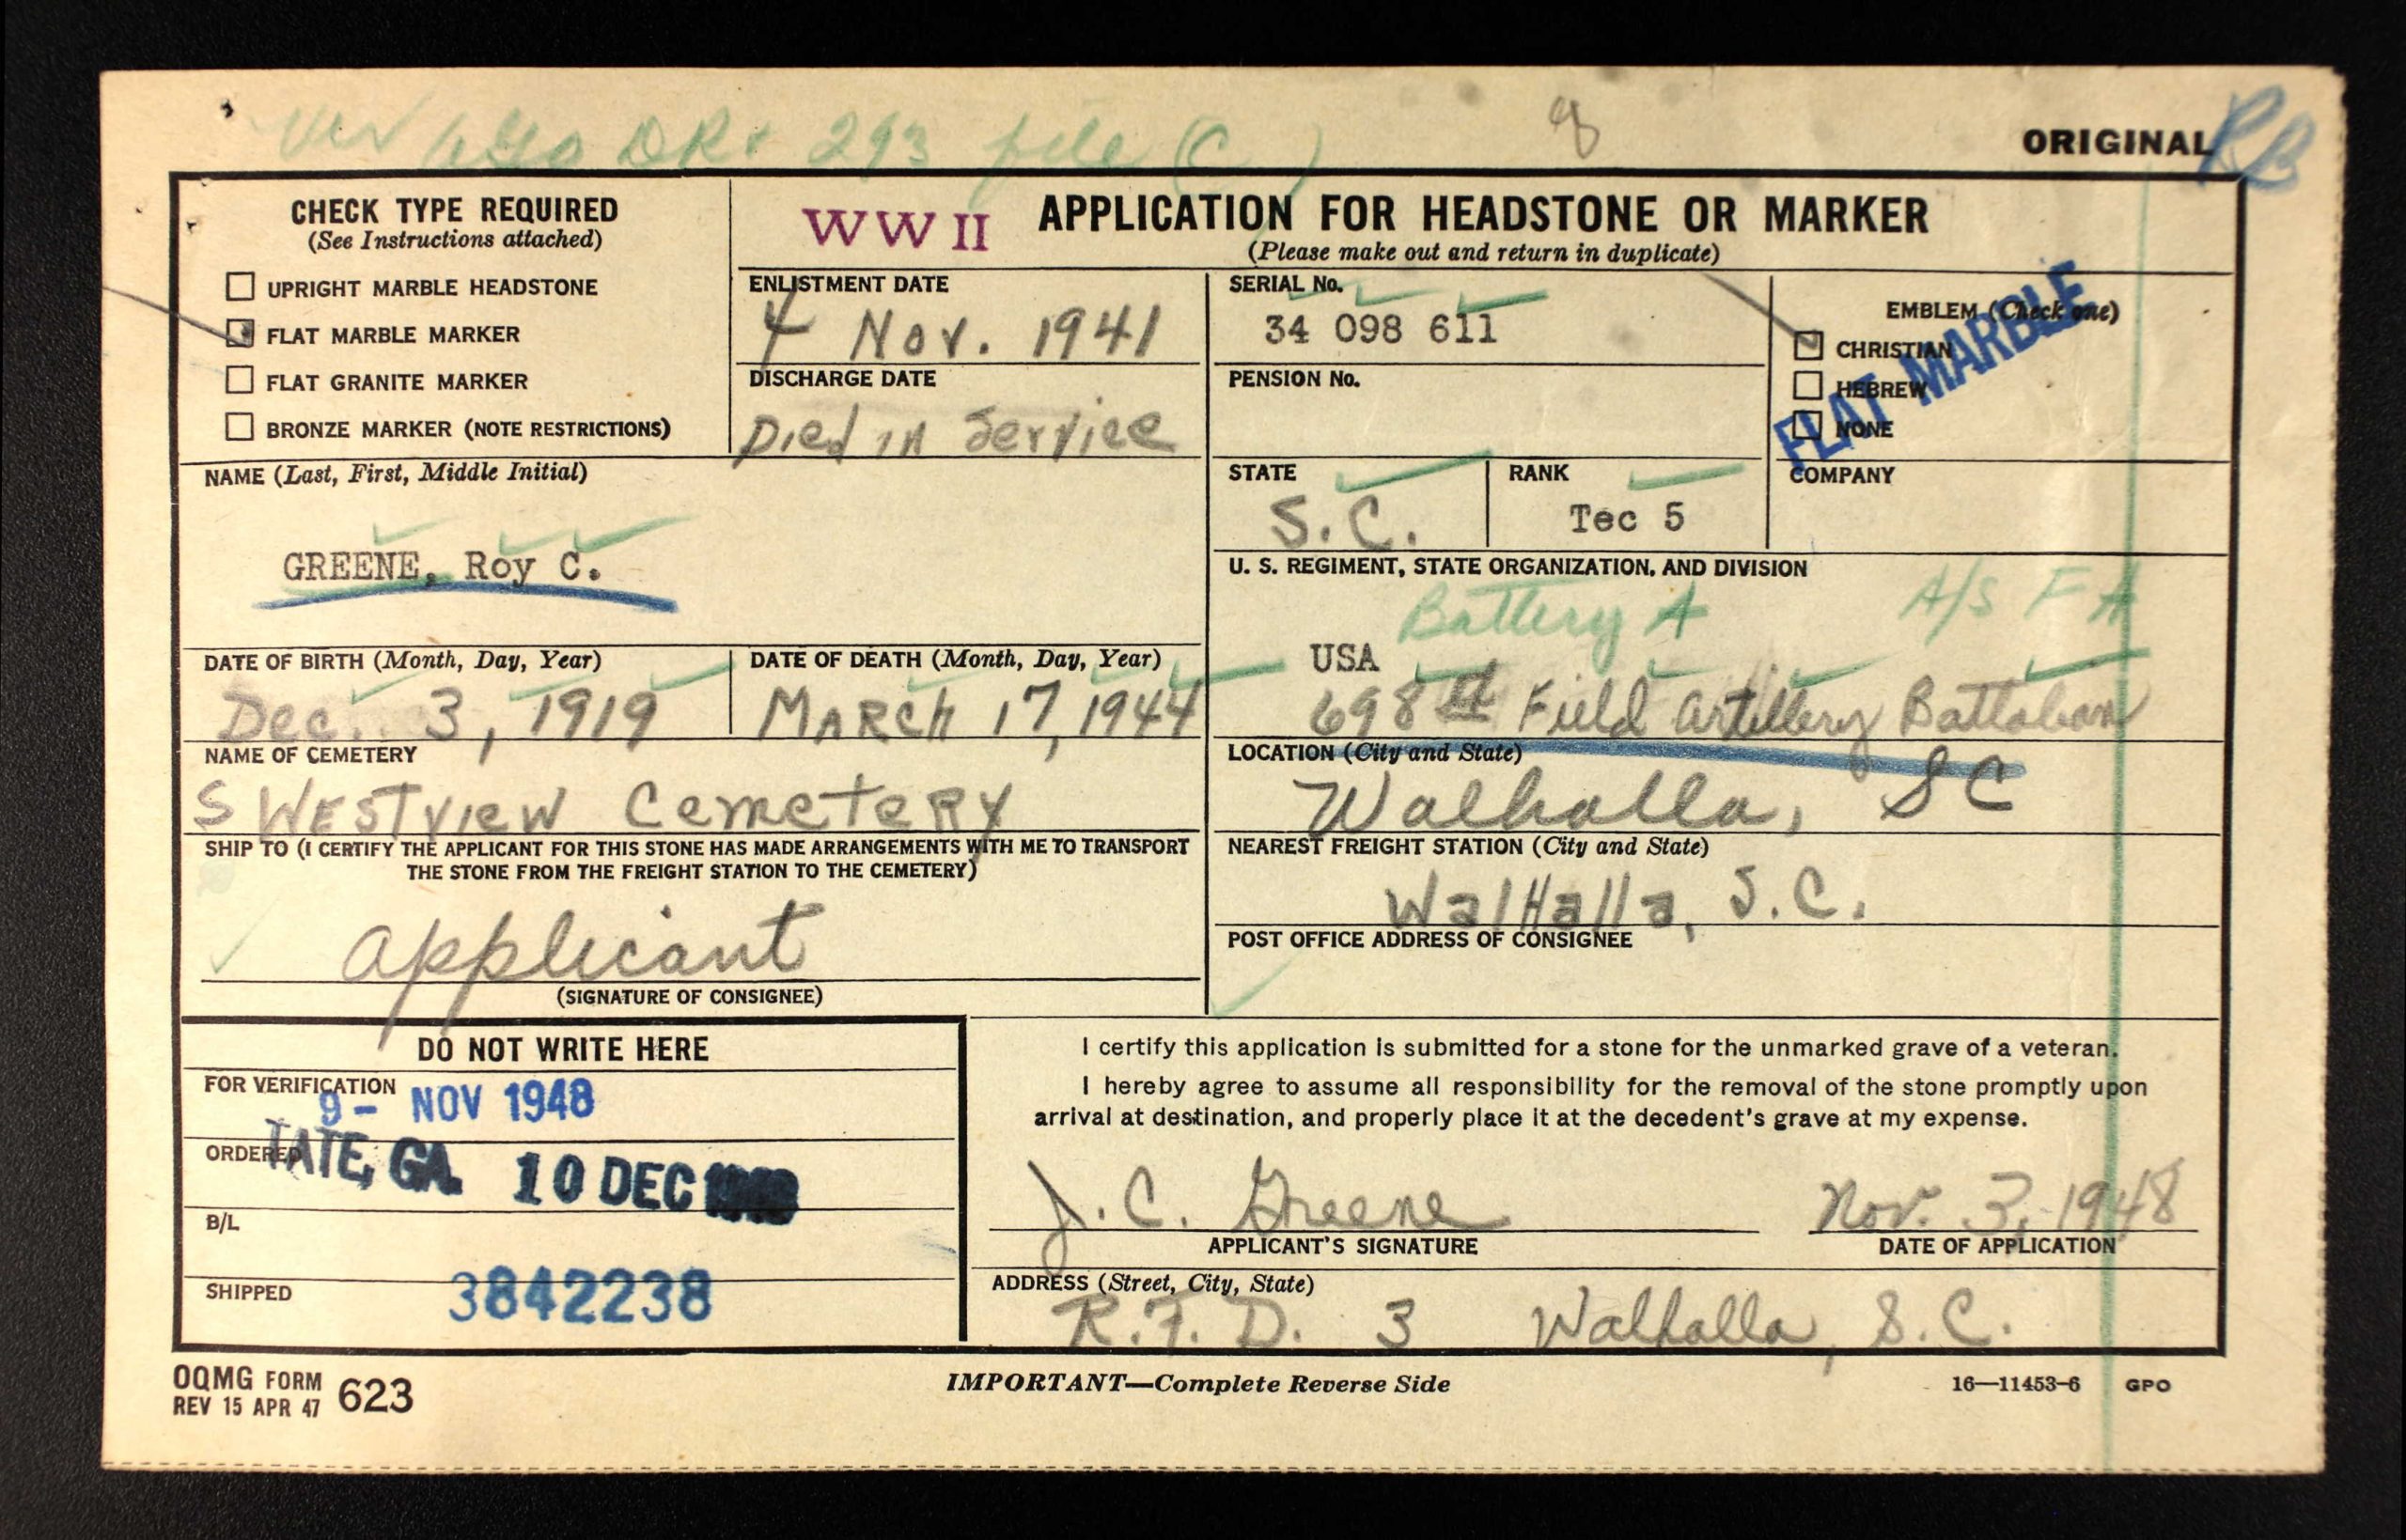 Ver AGO DR+ 293 file (C )
8
ORIGINAL
RB
CHECK TYPE REQUIRED
(See Instructions attached)
☐ UPRIGHT MARBLE HEADSTONE
☑ FLAT MARBLE MARKER
☐ FLAT GRANITE MARKER
☐ BRONZE MARKER (NOTE RESTRICTIONS)
WW II
APPLICATION FOR HEADSTONE OR MARKER
(Please make out and return in duplicate)
ENLISTMENT DATE
4 Nov. 1941
DISCHARGE DATE
Died in Service
SERIAL No.
34 098 611
PENSION No.
EMBLEM (Check one)
☑ CHRISTIAN
☐ HEBREW
☐ NONE
FLAT MARBLE
NAME (Last, First, Middle Initial)
GREENE, Roy C.
STATE
S.C.
RANK
Tec 5
COMPANY
U. S. REGIMENT, STATE ORGANIZATION, AND DIVISION
Battery A A/S F A
USA
698th Field Artillery Battalion
DATE OF BIRTH (Month, Day, Year)
Dec. 3, 1919
DATE OF DEATH (Month, Day, Year)
MARCH 17, 1944
NAME OF CEMETERY
S WESTVIEW CemeteRY
LOCATION (City and State)
Walhalla, SC
SHIP TO (I CERTIFY THE APPLICANT FOR THIS STONE HAS MADE ARRANGEMENTS WITH ME TO TRANSPORT
THE STONE FROM THE FREIGHT STATION TO THE CEMETERY)
applicant
(SIGNATURE OF CONSIGNEE)
NEAREST FREIGHT STATION (City and State)
WalHalla, S.C.
POST OFFICE ADDRESS OF CONSIGNEE
DO NOT WRITE HERE
FOR VERIFICATION
9- NOV 1948
ORDERED
TATE, GA. 10 DEC
B/L
SHIPPED
3842238
I certify this application is submitted for a stone for the unmarked grave of a veteran.
I hereby agree to assume all responsibility for the removal of the stone promptly upon
arrival at destination, and properly place it at the decedent's grave at my expense.
J. C. Greene
APPLICANT'S SIGNATURE
Nov. 3, 1948
DATE OF APPLICATION
ADDRESS (Street, City, State)
R.F.D. 3 Walhalla, S.C.
OQMG FORM 623
REV 15 APR 47
IMPORTANT—Complete Reverse Side
16—11453-6 GPO